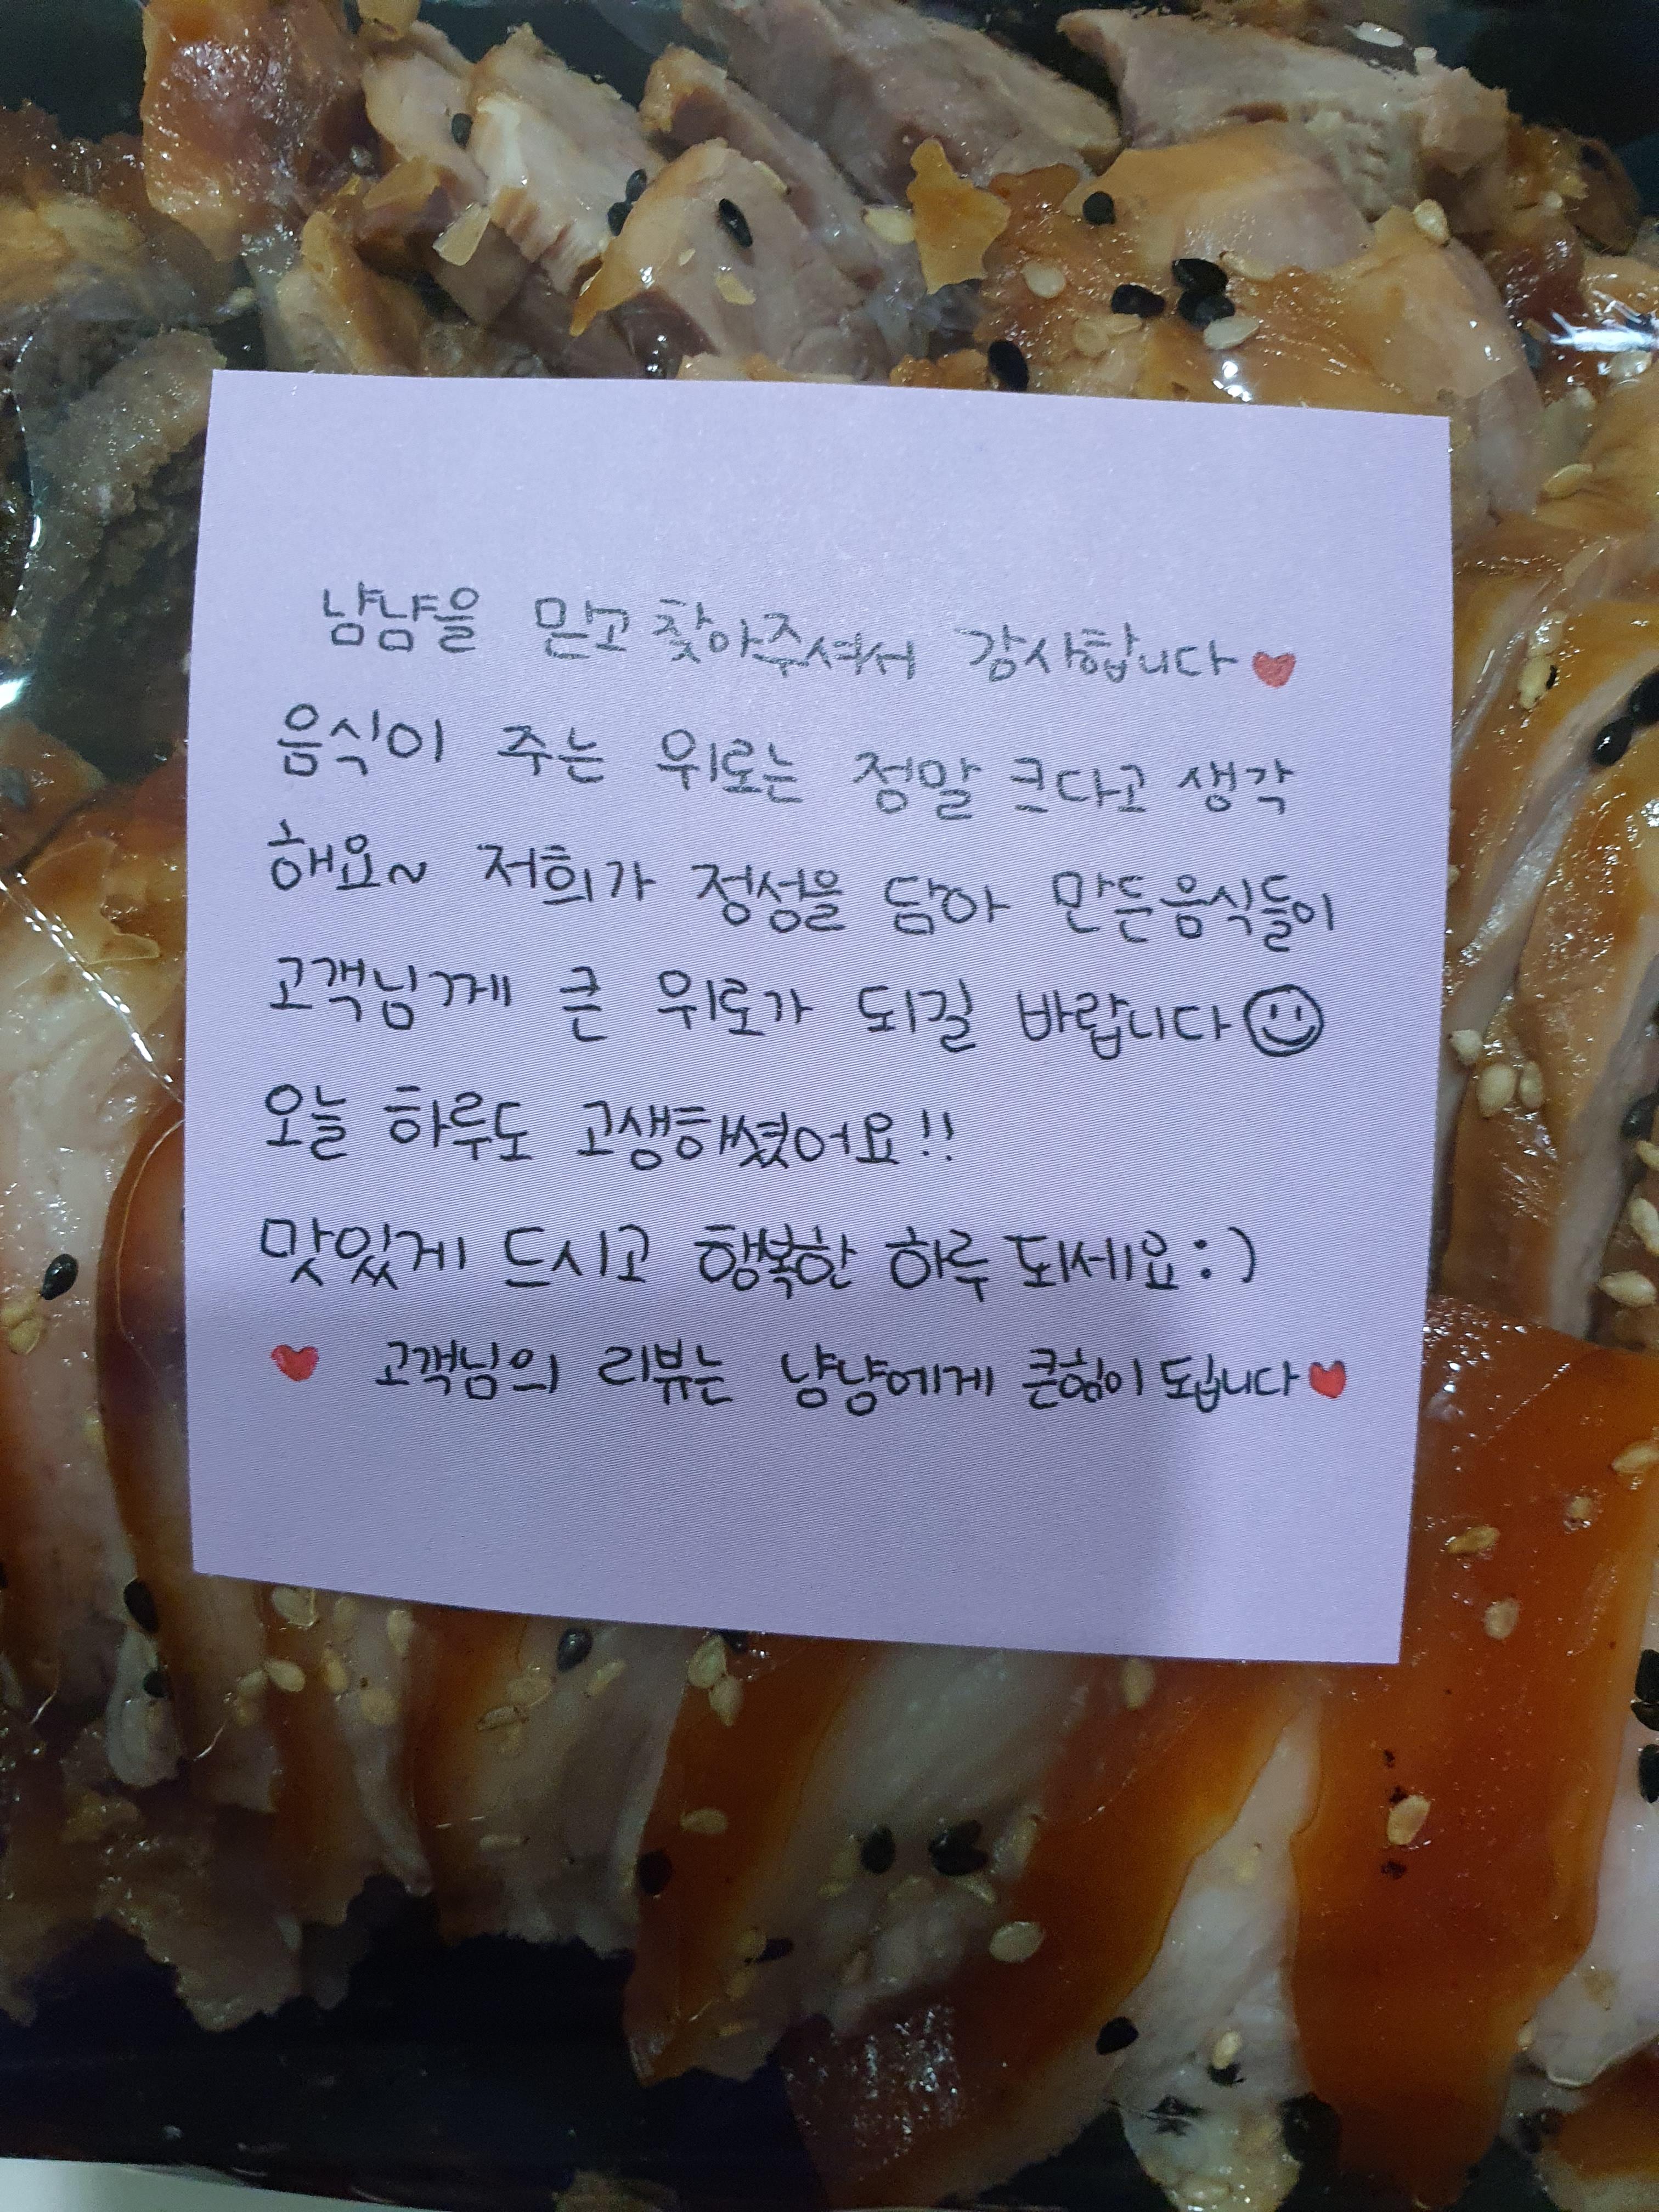 냠냠을 믿고 찾아주셔서 감사합니다♥
음식이 주는 위로는 정말 크다고 생각
해요~ 저희가 정성을 담아 만든음식들이
고객님께 큰 위로가 되길 바랍니다☺
오늘 하루도 고생하셨어요!!
맛있게 드시고 행복한 하루 되세요:)
♥ 고객님의 리뷰는 냠냠에게 큰힘이 됩니다♥